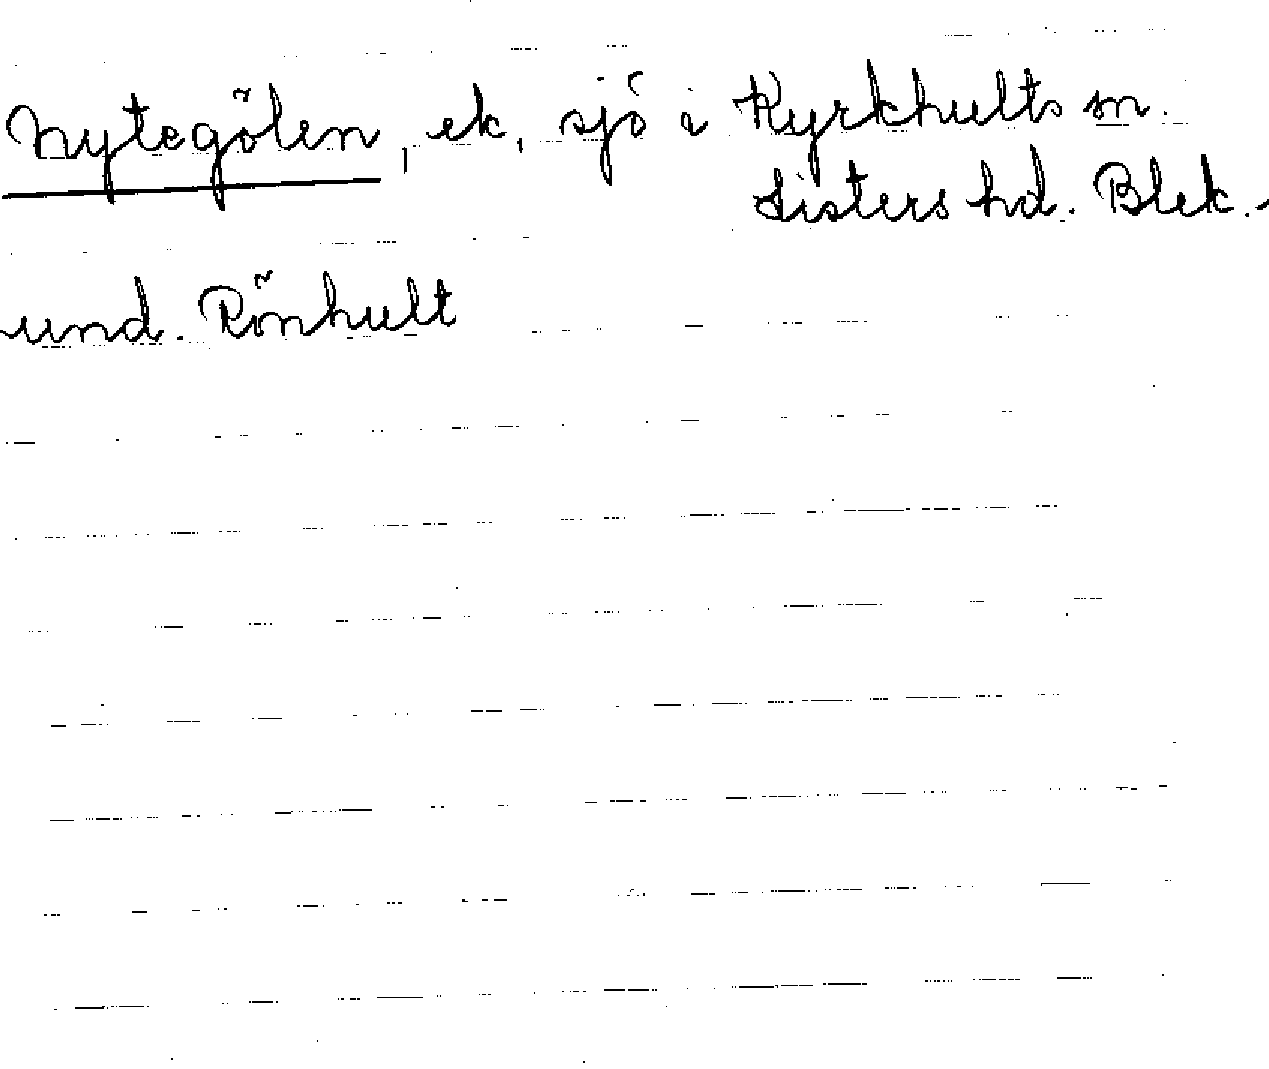 Nytegölen, ek, sjö i Kyrkhults sn.
Listers hd. Blek.
und. Rönhult